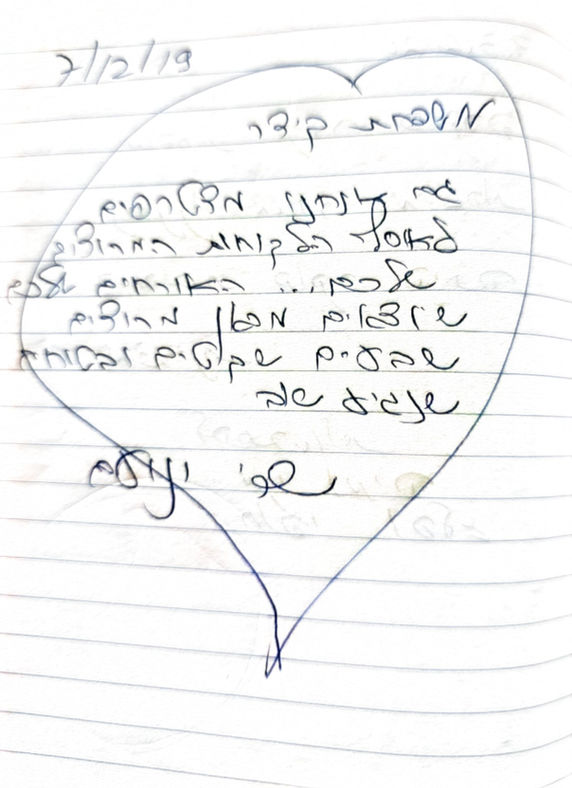 7/12/19
משפחת קידר
גם אנחנו מצטרפים
לאוסף הלקוחות המרוצים
שלכם... האורחים שלכם
שיוצאים מכאן מרוצים
שבעים שקטים ובטוחה
שנגיע שוב
שפי ונועם